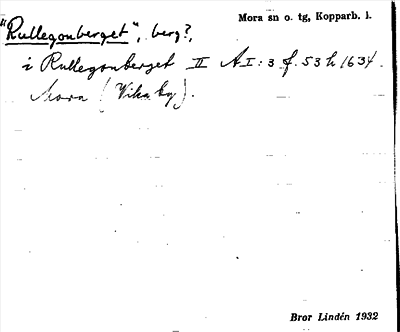 Mora sn o. tg, Kopparb. l.
"Rullegonberget", berg?,
i Rullegonberget II A I: 3 f. 53 h 1634.
Mora (Vika by).
Bror Lindén 1932